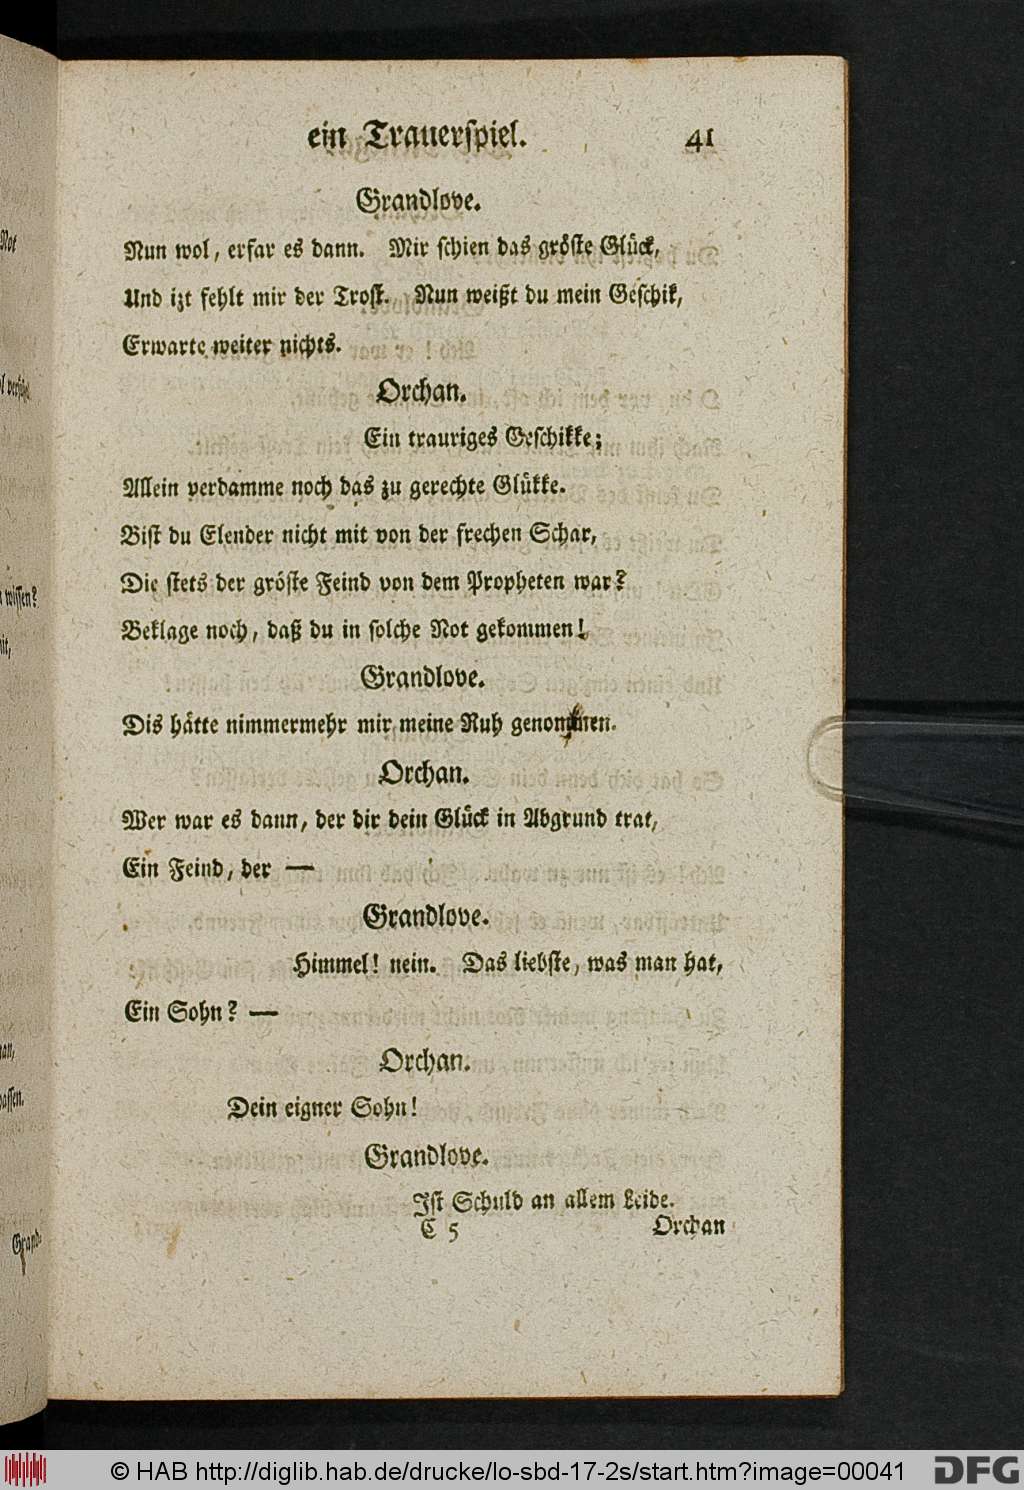 ein Trauerspiel. 41
Grandlove.
Nun wol, erfar es dann. Mir schien das gröste Glück,
Und izt fehlt mir der Trost. Nun weißt du mein Geschik,
Erwarte weiter nichts.
Orchan.
Ein trauriges Geschikke;
Allein verdamme noch das zu gerechte Glükke.
Bist du Elender nicht mit von der frechen Schar,
Die stets der gröste Feind von dem Propheten war?
Beklage noch, daß du in solche Not gekommen!
Grandlove.
Dis hätte nimmermehr mir meine Ruh genommen.
Orchan.
Wer war es dann, der dir dein Glück in Abgrund trat,
Ein Feind, der —
Grandlove.
Himmel! nein. Das liebste, was man hat,
Ein Sohn? —
Orchan.
Dein eigner Sohn!
Grandlove.
Ist Schuld an allem Leide.
C 5 Orchan
Not
wissen?
Grand-
© HAB http://diglib.hab.de/drucke/lo-sbd-17-2s/start.htm?image=00041
DFG